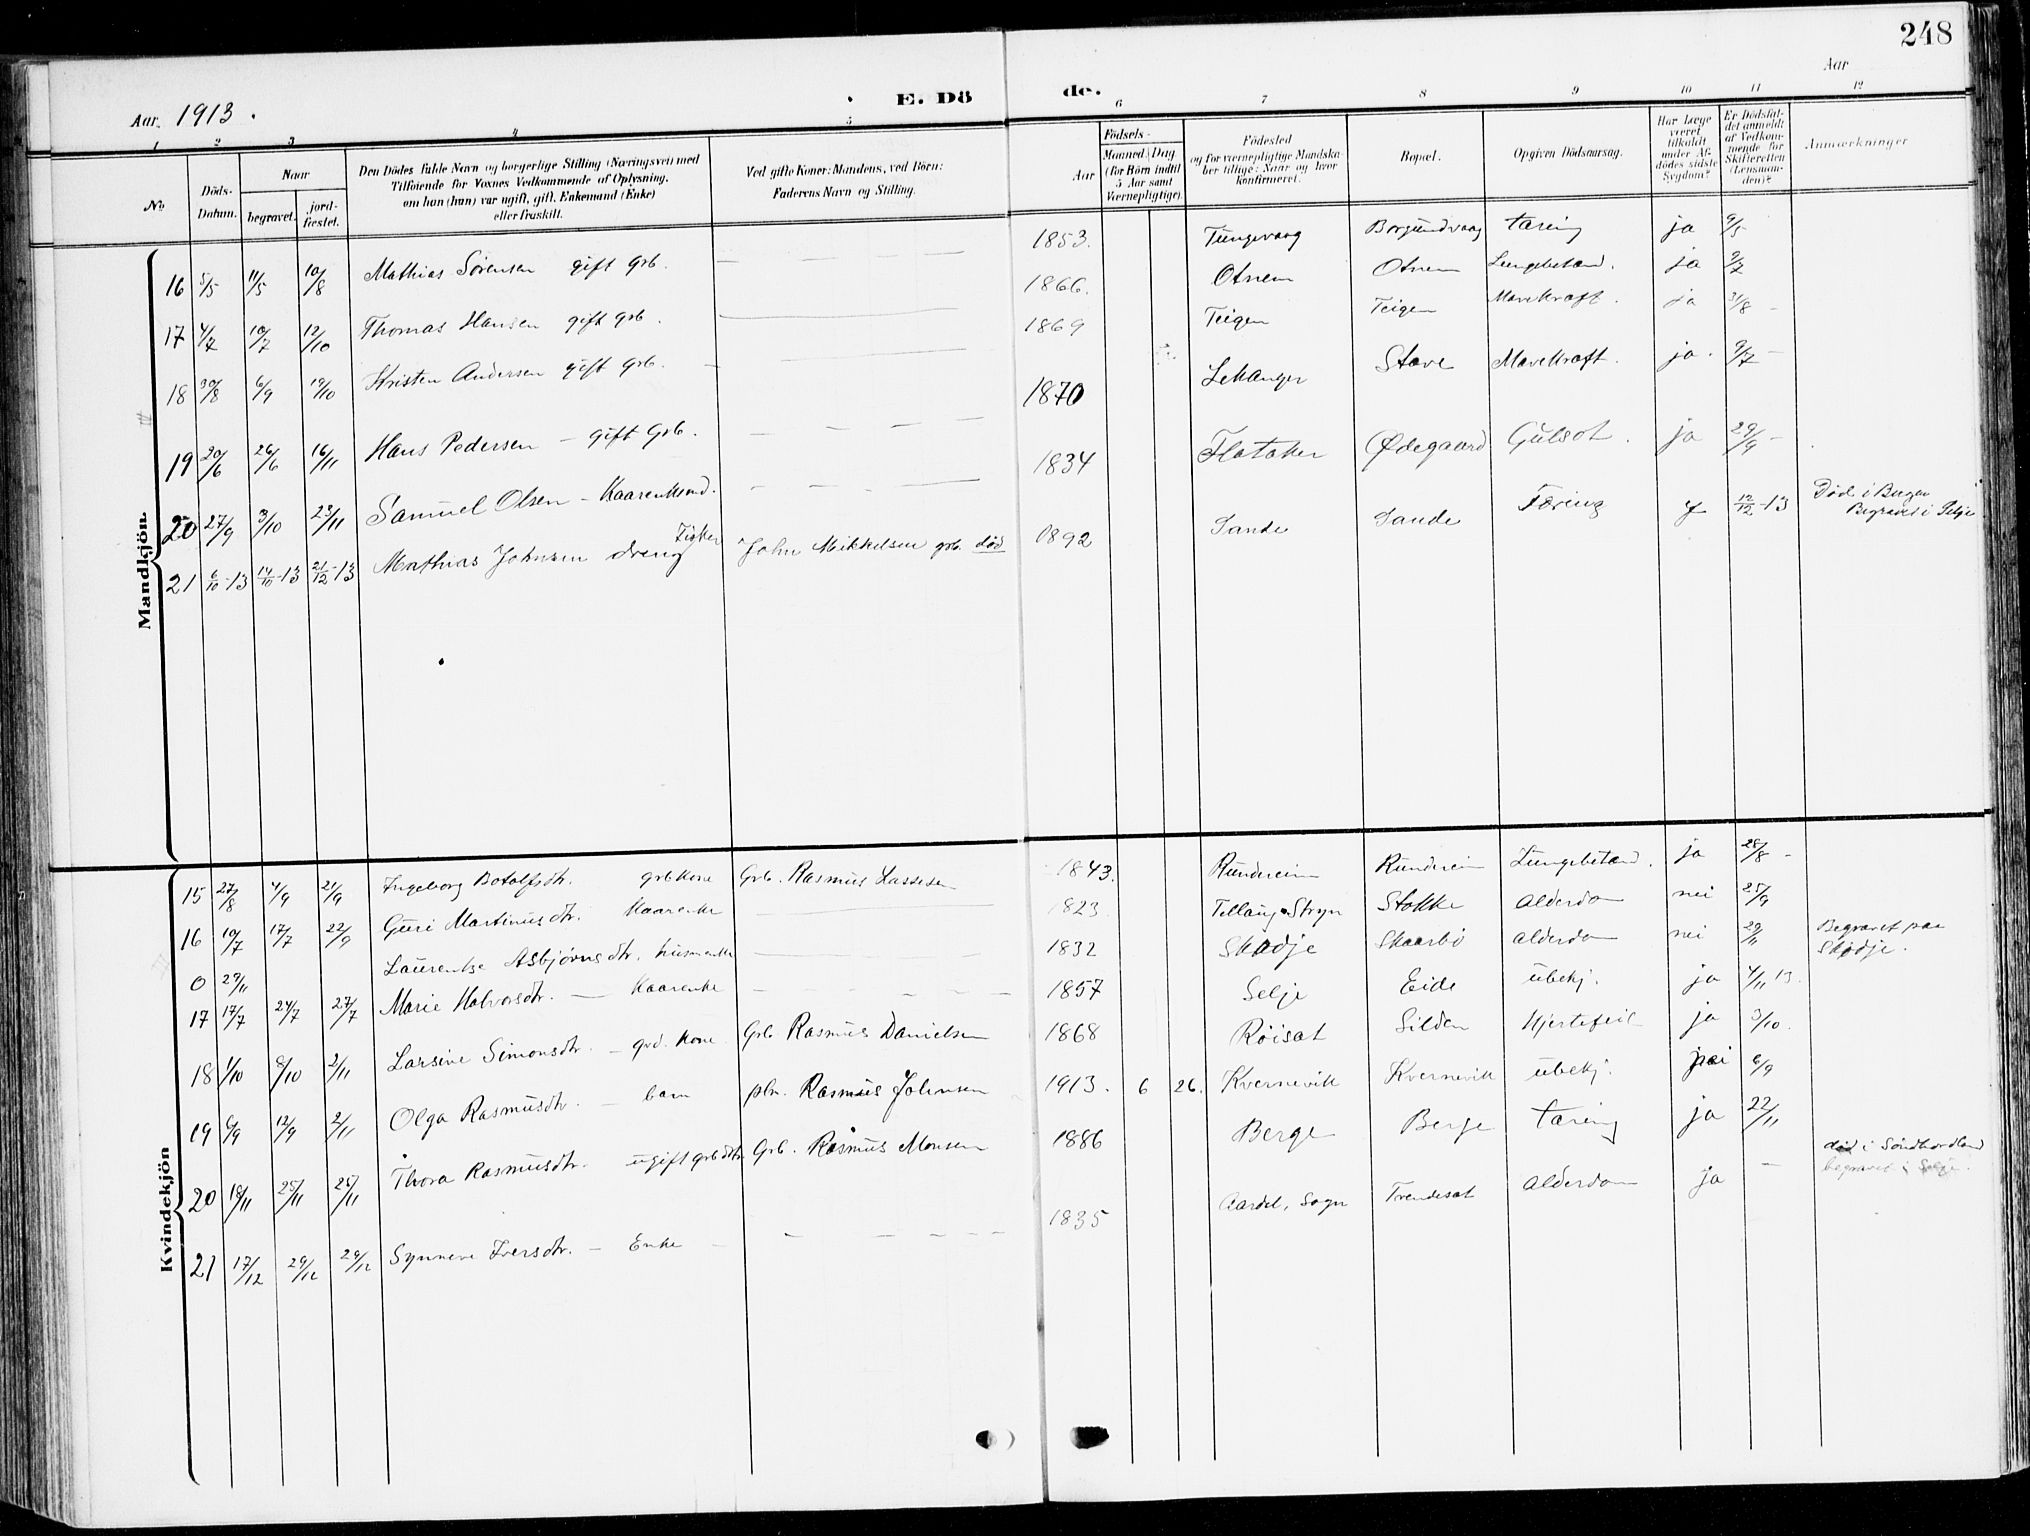 248
Aar 1913.
E. Dö de.
Aar
1 2 3 4 5 6 7 8 9 10 11 12
No
Döds-Datum.
Naar
begravet.
jord-fæstet.
Den Dödes fulde Navn og borgerlige Stilling (Næringsvei) med
Tilföiende for Voxnes Vedkommende af Oplysning,
om han (hun) var ugift, gift, Enkemand (Enke)
eller fraskilt.
Ved gifte Koner: Mandens, ved Börn:
Faderens Navn og Stilling.
Födsels-
Aar
Maaned. Dag
(for Börn indtil
5 Aar samt
Værnepligtige).
Födested
og for værnepligtige Mandska-
ber tillige: Naar og hvor
konfirmeret.
Bopæl.
Opgiven Dödsaarsag.
Har Læge
været
tilkaldt
under Af-
dödes sidste
Sygdom?
Er Dödsfal-
det anmeldt
af Vedkom-
mende for
Skifteretten
(Lensman-
den)?
Anmærkninger
Mandkjön.
16 5/5 11/5 10/8 Mathias Sørensen gift grb. 1853. Tungevaag Borgundvaag tæring ja 9/5
17 4/7 10/7 12/10 Thomas Hansen gift grb. 1866. Otnem Otnem Lungebetænd. ja 9/7
18 30/8 6/9 19/10 Kristen Andersen gift grb. 1869 Teigen Teigen Mavekræft. ja 31/8
19 20/6 26/6 16/11 Hans Pedersen - gift Grb. 1870 Lekanger Stave Mavekræft. ja. 9/7
20 27/9 3/10 23/11 Samuel Olsen - Kaarenkemd. 1834 Flatøker Ødegaard Gulsot. ja 29/9
21 6/10-13 14/10-13 21/12-13 Mathias Johnsen dreng Fisker John Mikkelsen grb. død 1892 Sande Sande Tæring J 12/12-13 Død i Bergen Begravet i Selje
Kvindekjön
15 27/8 4/9 21/9 Ingeborg Botolfsdtr. grbkone Grb. Rasmus Lassesen 1843. Rundereim Rundereim Lungebetænd. ja 28/8
16 10/7 17/7 22/9 Guri Martinusdtr. Kaarenke 1823 Stryn Stokke Alderdom nei 25/9
0 29/11 Laurentse Asbjørnsdtr. husmenke 1832 Skodje Skaarbø alderdom nei 29/11 Begravet paa Skodje.
17 17/7 24/7 27/7 Marie Halvorsdtr. - Kaarenke 1857 Selje Eide ubekj. ja 4/11 13.
18 1/10 8/10 2/11 Larsine Simonsdtr. - grd. Kone Grb Rasmus Danielsen 1868 Røisæt Silden Hjertefeil ja 3/10.
19 6/9 12/9 2/11 Olga Rasmusdtr. - barn pln. Rasmus Johnsen 1913. 6 26. Kvernevik Kvernevik ubekj. nei 6/9
20 18/11 25/11 25/11 Thora Rasmusdtr. ugift grb dtr. Grb. Rasmus Monsen 1886 Berge Berge tæring ja 22/11
21 17/12 29/12 29/12 Synneve Iversdtr. - Enke 1835 Aardal, Sogn Trendesæt Alderdom ja - død i Søndhordland begravet i Selje.